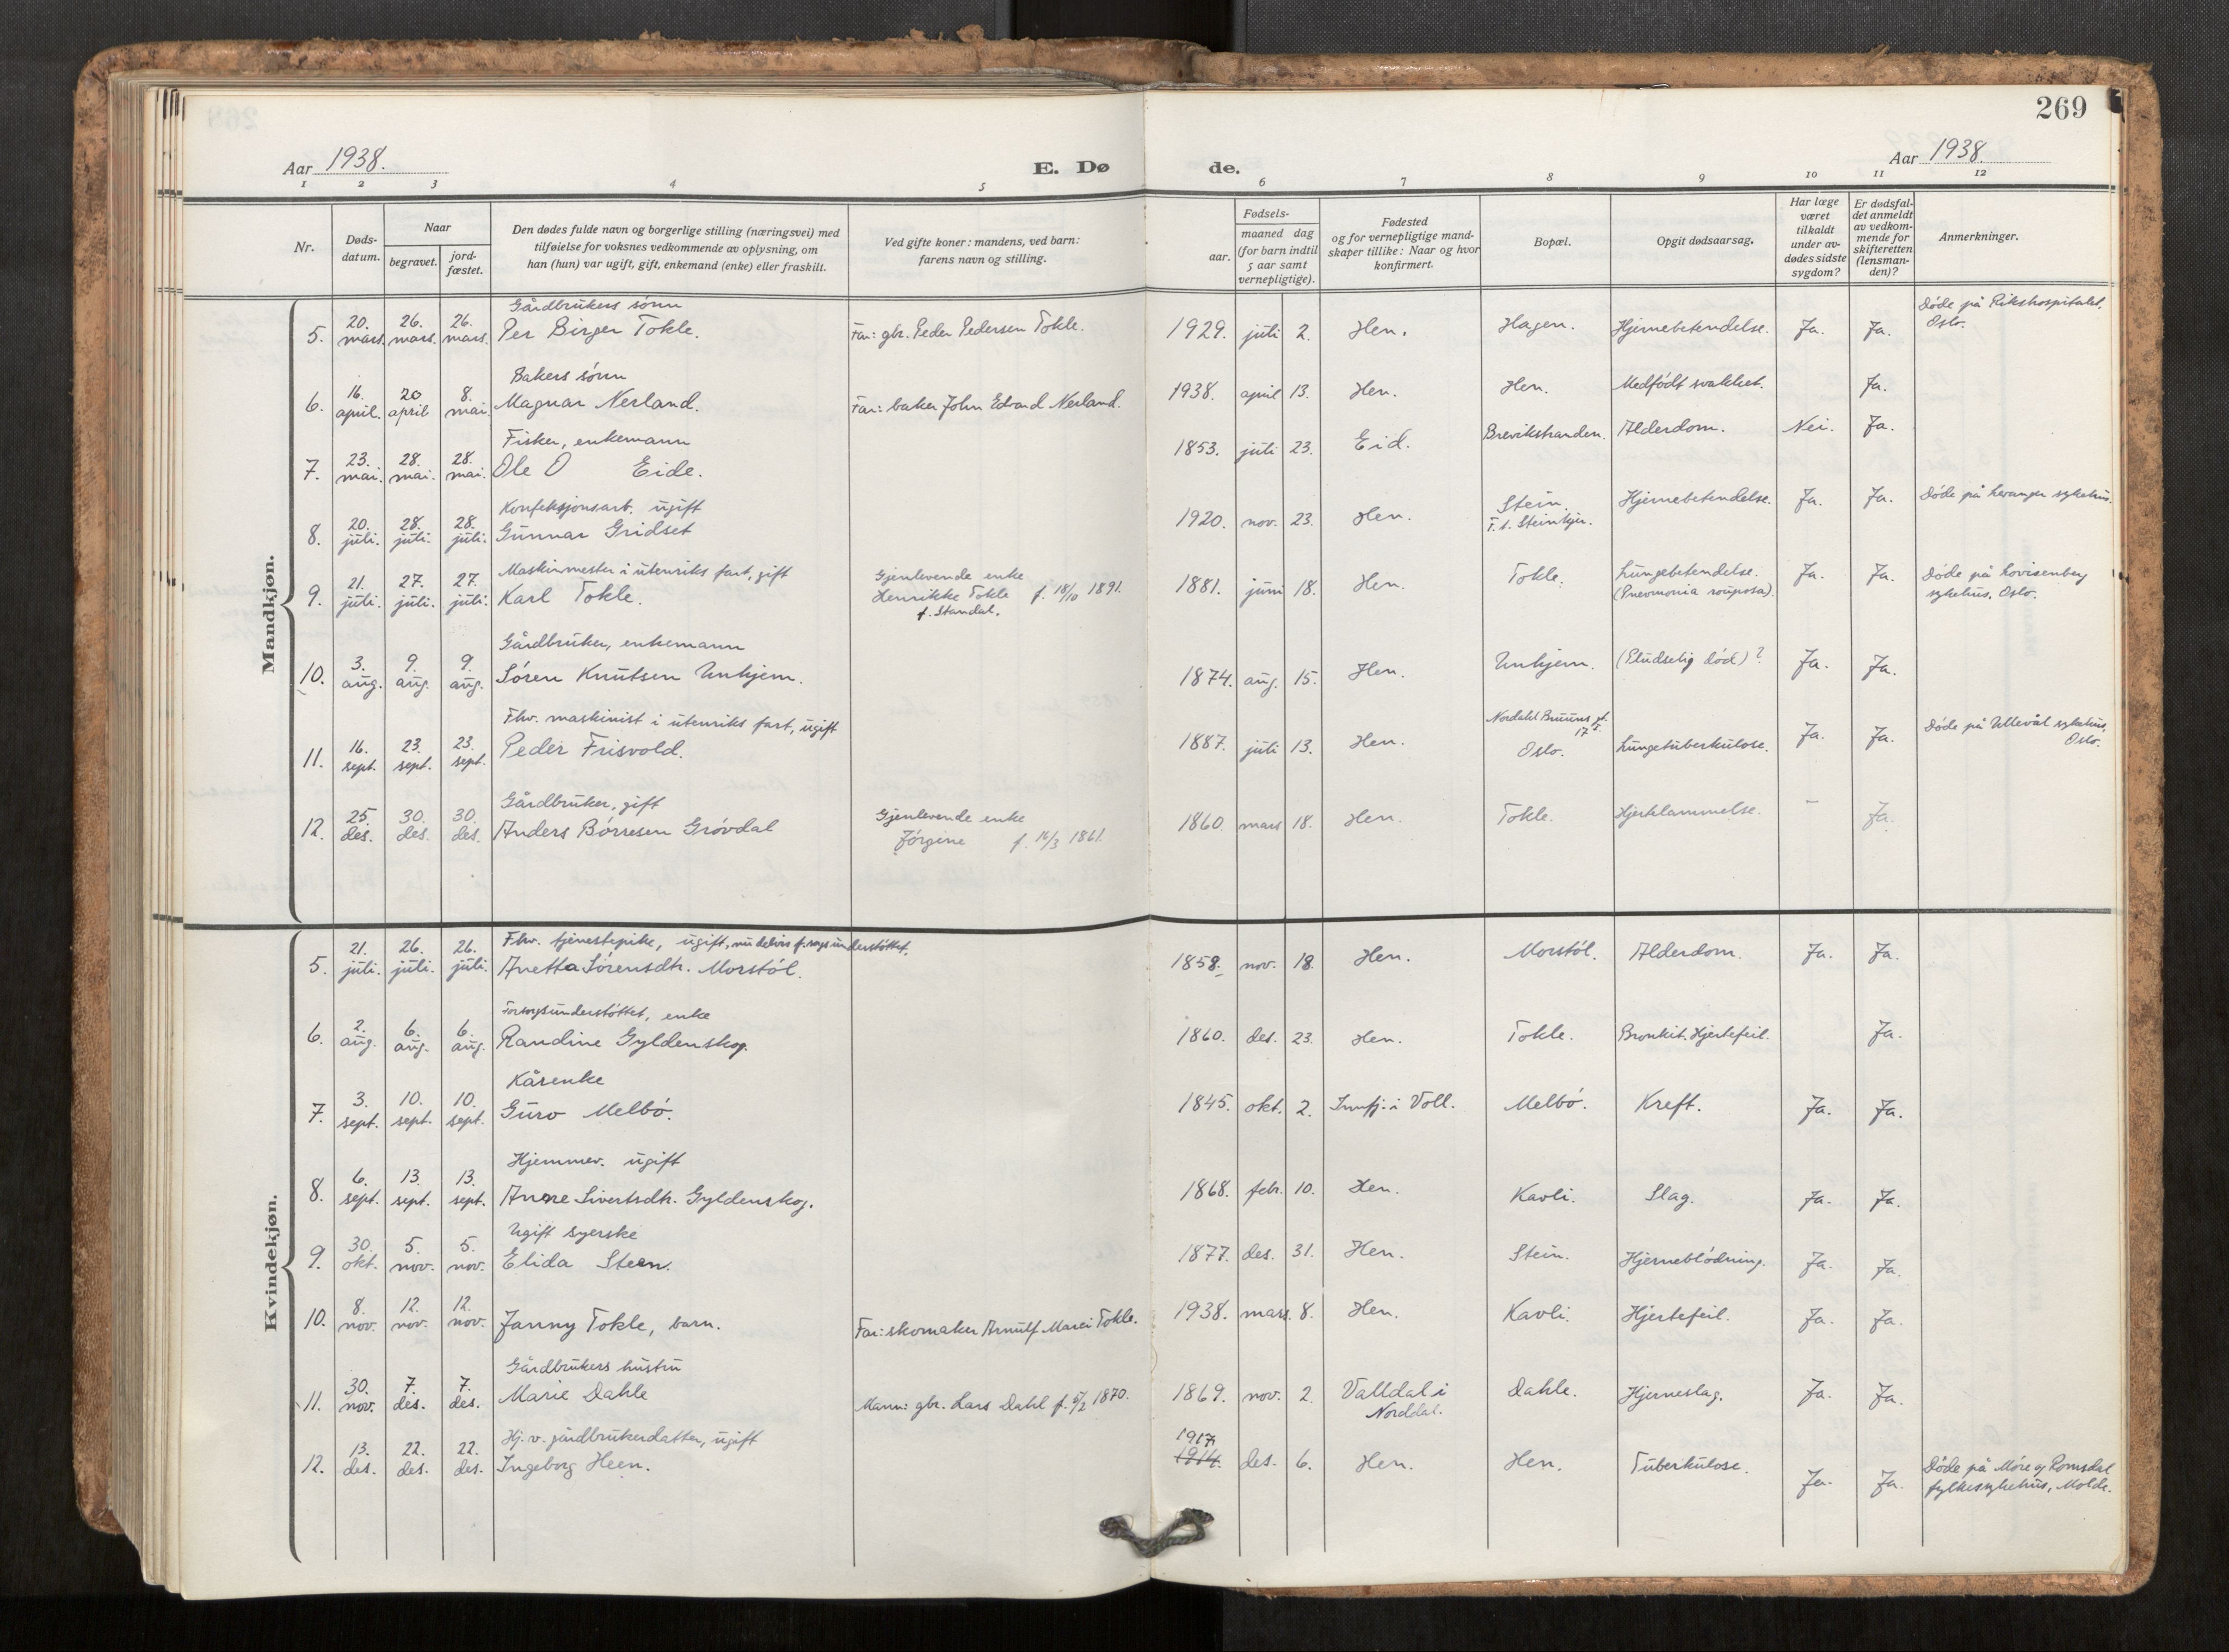 269
Aar 1938.
E. Døde.
Aar 1938.
1 2 3 4 5 6 7 8 9 10 11 12
Nr.
Døds-
datum.
Naar
begravet.
jord-
fæstet.
Den dødes fulde navn og borgerlige stilling (næringsvei) med
tilføielse for voksnes vedkommende av oplysning, om
han (hun) var ugift, gift, enkemand (enke) eller fraskilt.
Ved gifte koner: mandens, ved barn:
farens navn og stilling.
Fødsels-
aar.
maaned dag
(for barn indtil
5 aar samt
vernepligtige).
Fødested
og for vernepligtige mand-
skaper tillike: Naar og hvor
konfirmert.
Bopæl.
Opgit dødsaarsag.
Har læge
været
tilkaldt
under av-
dødes sidste
sygdom?
Er dødsfal-
det anmeldt
av vedkom-
mende for
skifteretten
(lensman-
den)?
Anmerkninger.
Mandkjøn.
Gårdbrukers sønn
5. 20. mars. 26. mars. 26. mars. Per Birger Tokle. Far: gbr. Peder Pedersen Tokle. 1929. juli 2. Hen. Hagen. Hjernebetendelse. Ja. Ja. Døde på Rikshospitalet,
Oslo.
Bakers sønn
6. 16. april. 20 april 8. mai. Magnar Nerland. Far: baker John Edvard Nerland. 1938. april 13. Hen. Hen. Medfødt svakhet. Ja.
Fisker, enkemann
7. 23. mai. 28. mai. 28. mai. Ole O Eide. 1853. juli 23. Eid. Brevikstranden. Alderdom. Nei. Ja.
Konfeksjonsarb. ugift
8. 20. juli. 28. juli. 28. juli. Gunnar Gridset 1920. nov. 23. Hen. Stein.
F. t. Steinkjer. Hjernebetendelse. Ja. Ja. Døde på Levanger sykehus.
Maskinmester i utenriks fart, gift
9. 21. juli. 27. juli. 27. juli. Karl Tokle. Gjenlevende enke
Henrikke Tokle f. 18/10 1891.
f. Standal. 1881. juni 18. Hen. Tokle. Lungebetendelse.
(Pnevmonia). Ja. Ja. Døde på Lovisenberg
sykehus. Oslo.
Gårdbruker, enkemann
10. 3. aug. 9. aug. 9. aug. Søren Knutsen Unhjem. 1874. aug. 15. Hen. Unhjem. (Pludselig død)? Ja. Ja.
Fhv. maskinist i utenriks fart, ugift
11. 16. sept. 23. sept. 23. sept. Peder Frisvold. 1887. juli 13. Hen. Nordahl Bruuns gt.
17 I
Oslo. Lungetuberkulose. Ja. Ja. Døde på Ullevål sykehus,
Oslo.
Gårdbruker, gift
12. 25. des. 30. des. 30. des. Anders Børresen Grøvdal Gjenlevende enke
Jørgine f. 16/3 1861. 1860. mars 18. Hen. Tokle. Hjertelammelse. - Ja.
Kvindekjøn.
Fhv. tjenestepike, ugift, nu delvis f.sorgsunderstøttet.
5. 21. juli. 26. juli. 26. juli. Anetta Sørensdtr. Morstøl. 1858. nov. 18. Hen. Morstøl. Alderdom. Ja. Ja.
Forsorgsunderstøttet, enke
6. 2. aug. 6. aug. 6. aug. Randine Gyldenskog. 1860. des. 23. Hen. Tokle. Bronkit. Hjertefeil. Ja.
Kårenke
7. 3. sept. 10. sept. 10. sept. Guro Melbø. 1845. okt. 2. Innfj. i Voll. Melbø. Kreft. Ja. Ja.
Hjemmev. ugift
8. 6. sept. 13. sept. 13. sept. Anne Sivertsdtr. Gyldenskog. 1868. febr. 10. Hen. Kavli. Slag. Ja. Ja.
Ugift syerske
9. 30. okt. 5. nov. 5. nov. Elida Steen. 1877. des. 31. Hen. Stein. Hjerneblødning. Ja. Ja.
10. 8. nov. 12. nov. 12. nov. Janny Tokle, barn. Far: skomaker Arnulf Marei Tokle. 1938. mars. 8. Hen. Kavli. Hjertefeil. Ja. Ja.
Gårdbrukers hustru
11. 30. nov. 7. des. 7. des. Marie Dahle Mann: gbr. Lars Dahl f. 6/2 1870. 1869. nov. 2. Valldal i
Norddal. Dahle. Hjerneslag. Ja. Ja.
Hj. v. gårdbrukerdatter, ugift
12. 13. des. 22. des. 22. des. Ingeborg Heen. 1917
1914. des. 6. Hen. Hen. Tuberkulose. Ja. Ja. Døde på Møre og Romsdal
fylkessykehus, Molde.